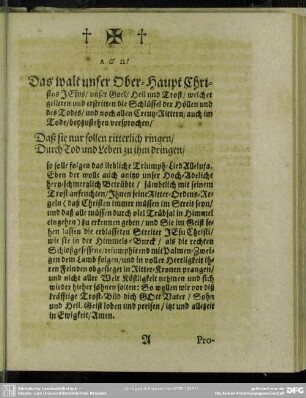 † ✠ †
A & Ω!
Das walt unser Ober-Haupt Chri-
stus JEsus/ unser Goel/ Heil und Trost/ welcher
gelitten und erstritten die Schlüssel der Höllen und
des Todes/ und noch allen Creutz-Rittern/ auch im
Tode/ beyzustehen versprochen/
Daß sie nur sollen ritterlich ringen/
Durch Tod und Leben zu ihm dringen/
so solle folgen das liebliche Triumph-Lied Alleluja.
Eben der wolle auch anitzo unser Hoch-Adeliche
hertz-schmertzlich Betrübte/ sämbtlich mit seinem
Trost anfeuchten/ Ihnen seine Ritter-Ordens-Re-
geln (daß Christen immer müssen im Streit seyn/
und daß alle müssen durch viel Trübsal in Himmel
eingehen) zu erkennen geben/ und Sie im Geist se-
hen lassen die erblasseten Streiter JEsu Christi/
wie sie in der Himmels-Burck/ als die rechten
Schloßgesessene/ triumphirend mit Palmen-Zwei-
gen dem Lamb folgen/ und in voller Herrligkeit ih-
ren Feinden obgesieget in Ritter-Kronen prangen/
und nicht aller Welt Köstligkeit nehmen und sich
wieder hieher sehnen solten: So wollen wir vor diß
kräfftige Trost-Bild dich GOtt Vater/ Sohn
und Heil. Geist loben und preisen/ itzt und allezeit
in Ewigkeit/ Amen.
A Pro-